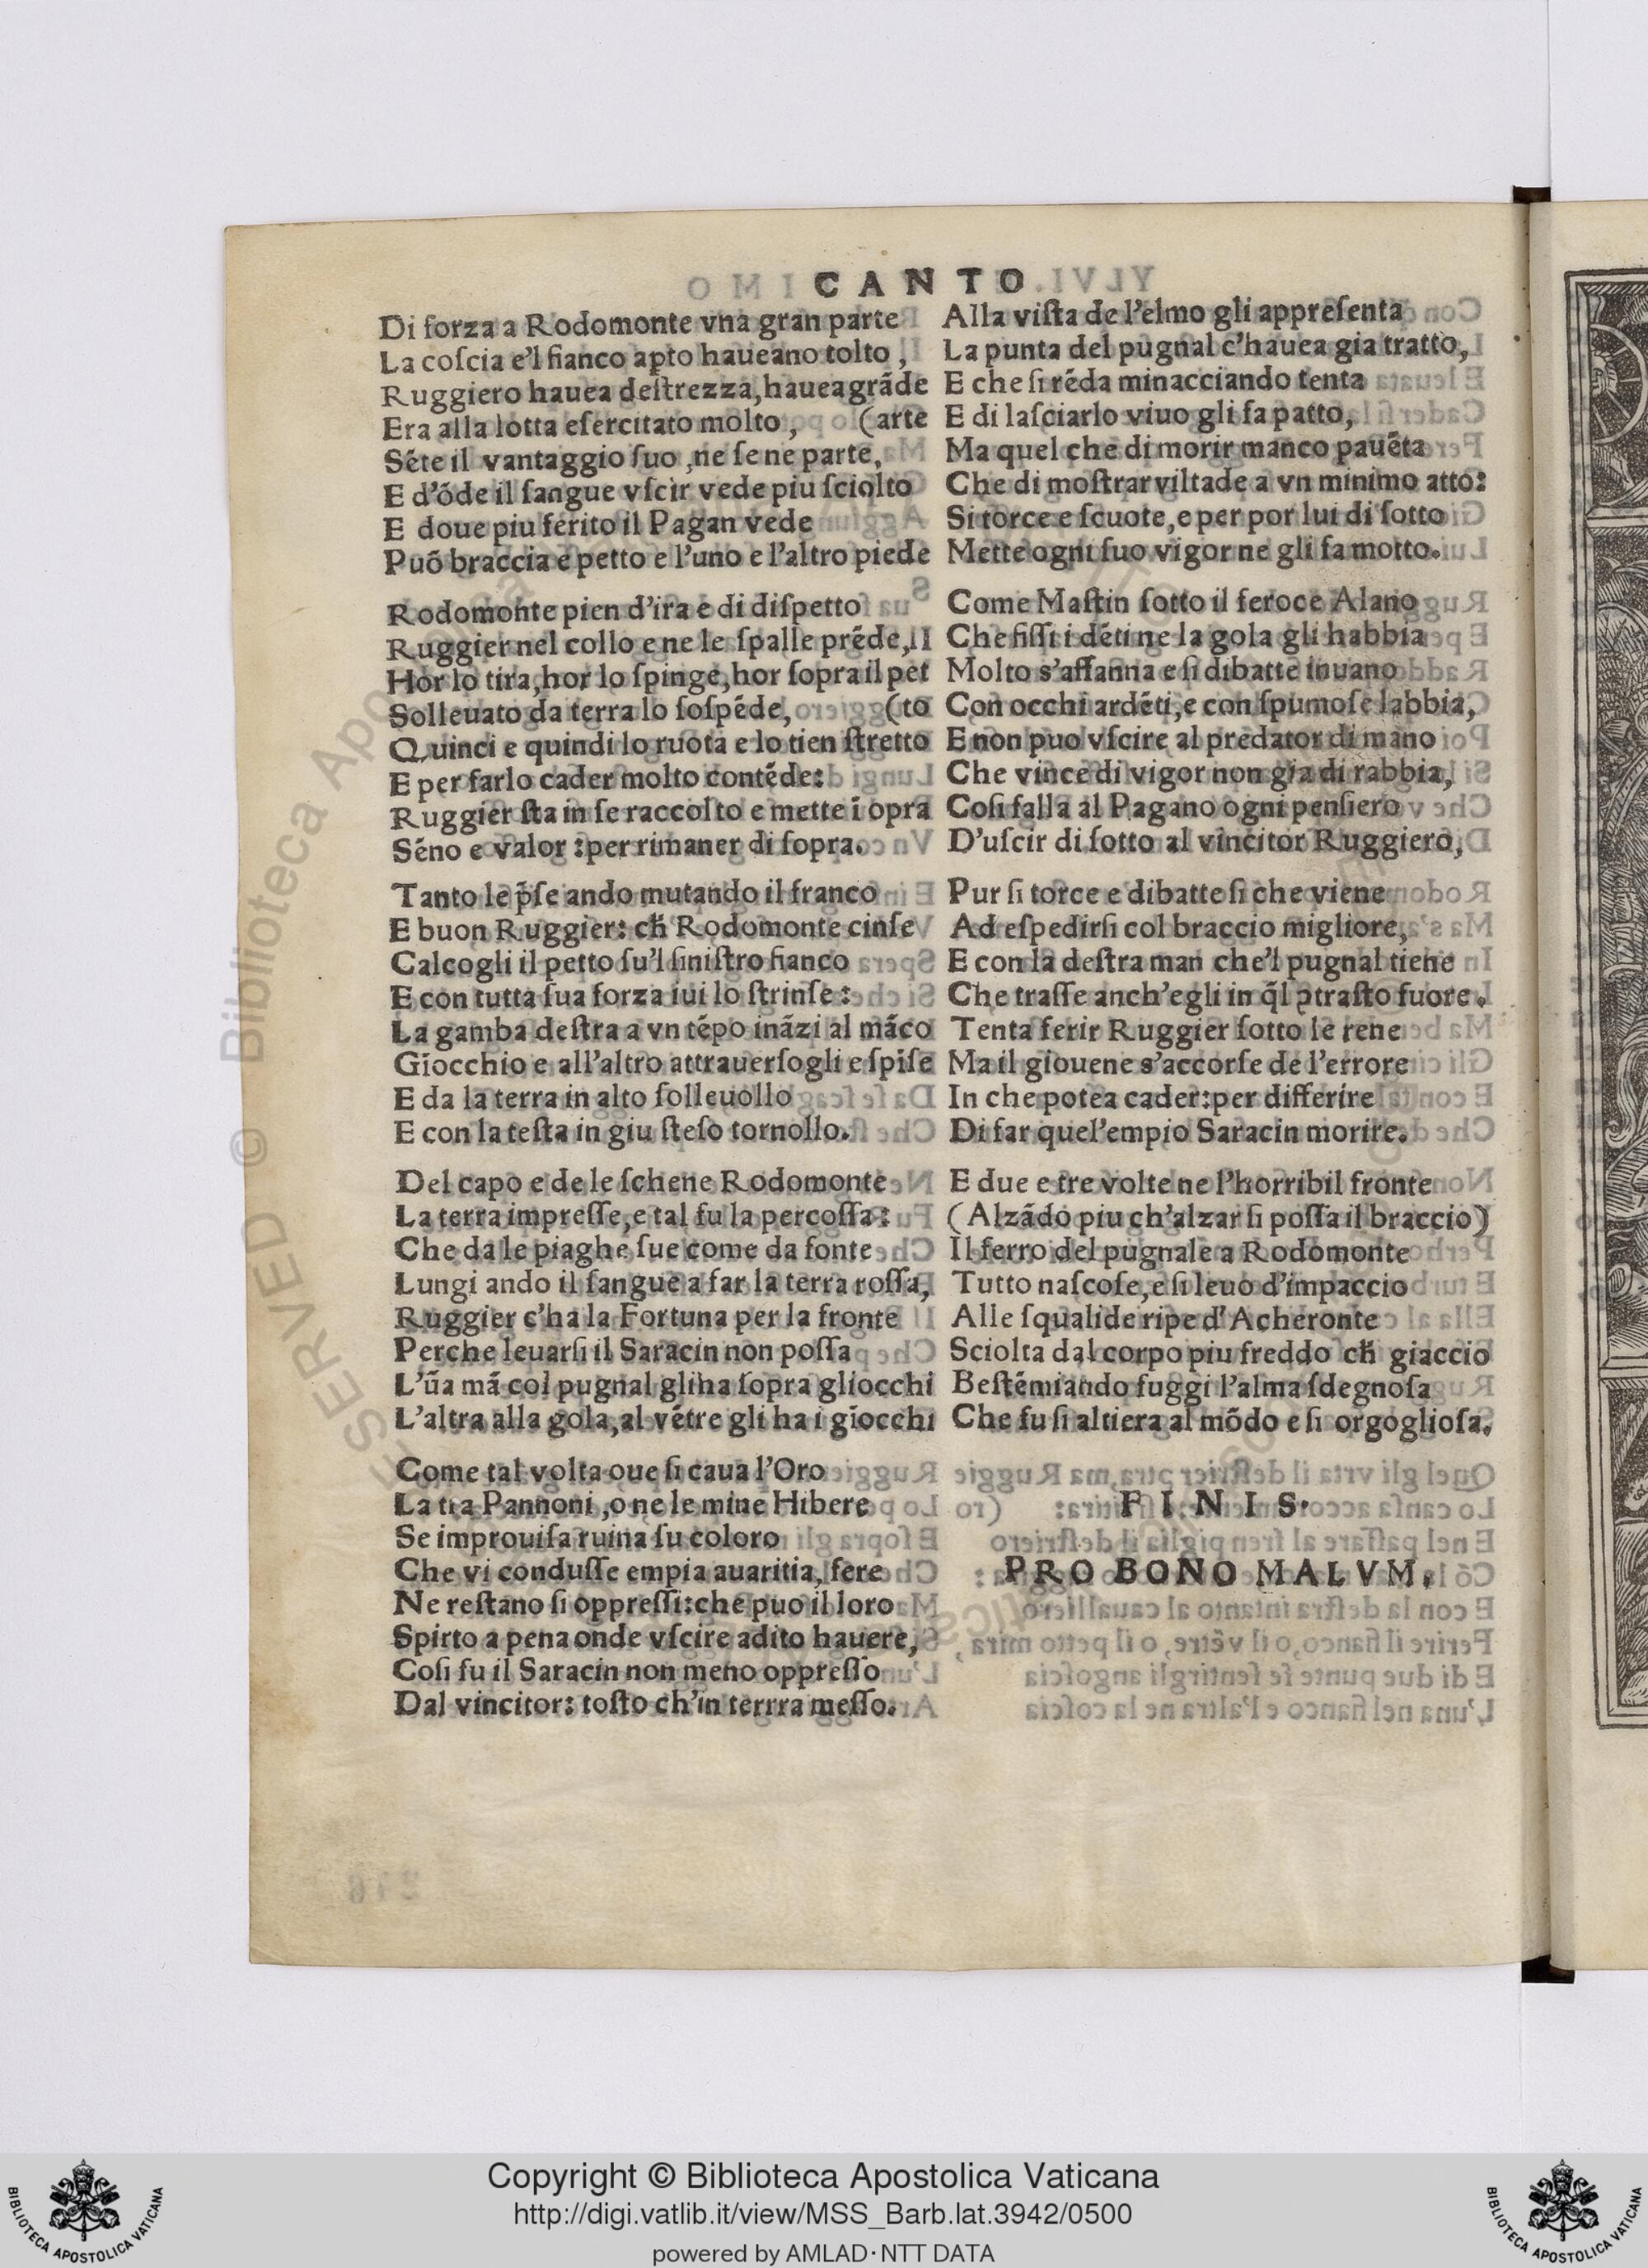 CANTO
Di forza a Rodomonte vna gran parte
La coſcia e'l fianco apto haueano tolto,
Ruggiero hauea deſtrezza, hauea grãde
Era alla lotta eſercitato molto, (arte
Sẽte il vantaggio ſuo, ne ſe ne parte,
E d'õde il ſangue vſcir vede piu ſciolto
E doue piu ferito il Pagan vede
Puõ braccia e petto e l'uno e l'altro piede
Rodomonte pien d'ira e di diſpetto
Ruggier nel collo e ne le ſpalle prẽde,
Hor lo tira, hor lo ſpinge, hor ſopra il pet
Solleuato da terra lo ſoſpẽde, (to
Quinci e quindi lo ruota e lo tien ſtretto
E per farlo cader molto contẽde:
Ruggier ſta in ſe raccolto e mette ĩ opra
Sẽno e valor : per rimaner di ſopra.
Tanto le p̃ſe ando mutando il franco
E buon Ruggier: ch̃ Rodomonte cinſe
Calcogli il petto ſu'l ſiniſtro fianco
E con tutta ſua forza iui lo ſtrinſe:
La gamba deſtra a vn tẽpo inãzi al mãco
Gĩocchio e all'altro attrauerſogli e ſpĩſe
E da la terra in alto ſolleuollo
E con la teſta in giu ſteſo tornollo.
Del capo e de le ſchene Rodomonte
La terra impreſſe, e tal fu la percoſſa:
Che da le piaghe ſue come da fonte
Lungi ando il ſangue a far la terra roſſa,
Ruggier c'ha la Fortuna per la fronte
Perche leuarſi il Saracin non poſſa
L'ũa mã col pugnal gli ha ſopra gliocchi
L'altra alla gola, al vẽtre gli ha i gĩocchi
Come tal volta oue ſi caua l'Oro
La tra Pannoni, o ne le mine Hibere
Se improuiſa ruina ſu coloro
Che vi conduſſe empia auaritia, fere
Ne reſtano ſi oppreſſi: che puo il loro
Spirto a pena onde vſcire adito hauere,
Coſi fu il Saracin non meno oppreſſo
Dal vincitor: toſto ch'in terrra meſſo.
Alla viſta de l'elmo gli appreſenta
La punta del pugnal c'hauea gia tratto,
E che ſi rẽda minacciando tenta
E di laſciarlo viuo gli fa patto,
Ma quel che di morir manco pauẽta
Che di moſtrar viltade a vn minimo atto:
Si torce e ſcuote, e per por lui di ſotto
Mette ogni ſuo vigor ne gli fa motto.
Come Maſtin ſotto il feroce Alano
Che fiſſi i dẽti ne la gola gli habbia
Molto s'affanna e ſi dibatte inuano
Con occhi ardẽti, e con ſpumoſe labbia,
E non puo vſcire al predator di mano
Che vince di vigor non gia di rabbia,
Coſi falla al Pagano ogni penſiero
D'uſcir di ſotto al vincitor Ruggiero,
Pur ſi torce e dibatte ſi che viene
Ad eſpedirſi col braccio migliore,
E con la deſtra man che'l pugnal tiene
Che traſſe anch'egli in q̃l ꝯtraſto fuore.
Tenta ferir Ruggier ſotto le rene
Ma il giouene s'accorſe de l'errore
In che potea cader: per differire
Di far quel'empio Saracin morire.
E due e tre volte ne l'horribil fronte
(Alzãdo piu ch'alzar ſi poſſa il braccio)
Il ferro del pugnale a Rodomonte
Tutto naſcoſe, e ſi leuo d'impaccio
Alle ſqualide ripe d'Acheronte
Sciolta dal corpo piu freddo ch̃ giaccio
Beſtẽmiando fuggi l'alma ſdegnoſa
Che fu ſi altiera al mõdo e ſi orgoglioſa.
FINIS.
PRO BONO MALVM.
Copyright © Biblioteca Apostolica Vaticana
http://digi.vatlib.it/view/MSS_Barb.lat.3942/0500
powered by AMLAD·NTT DATA
BIBLIOTECA APOSTOLICA VATICANA
BIBLIOTECA APOSTOLICA VATICANA